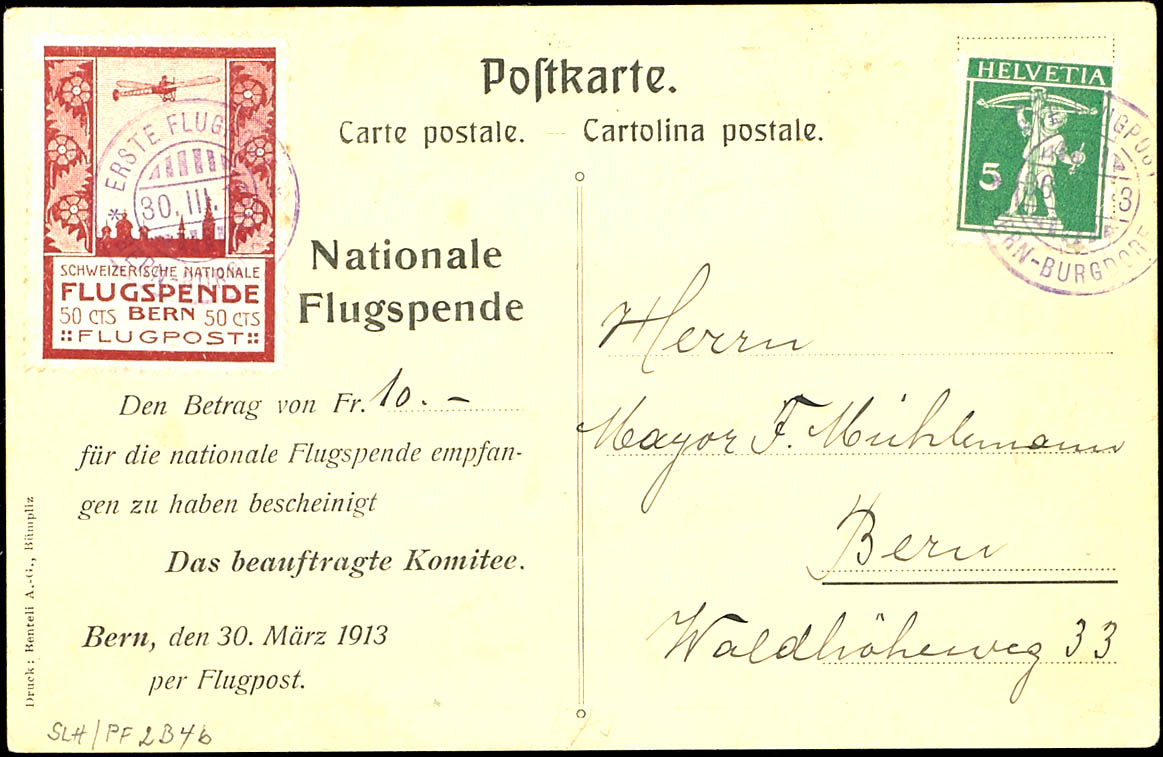 Poſtkarte.
Carte postale. — Cartolina postale.
SCHWEIZERISCHE NATIONALE
FLUGSPENDE
50 CTS BERN 50 CTS
FLUGPOST
* ERSTE FLUG
30. III.
BERN-BURG
Nationale
Flugspende
Den Betrag von Fr. 10. –
für die nationale Flugspende empfan-
gen zu haben bescheinigt
Das beauftragte Komitee.
Bern, den 30. März 1913
per Flugpost.
Druck: Benteli A.-G., Bümpliz
SLH/PF 2B4b
HELVETIA
5
FLUGPOST
30 13
BERN-BURGDORF
Herrn
Mayor F. Mühlemann
Bern
Waldhöheweg 33